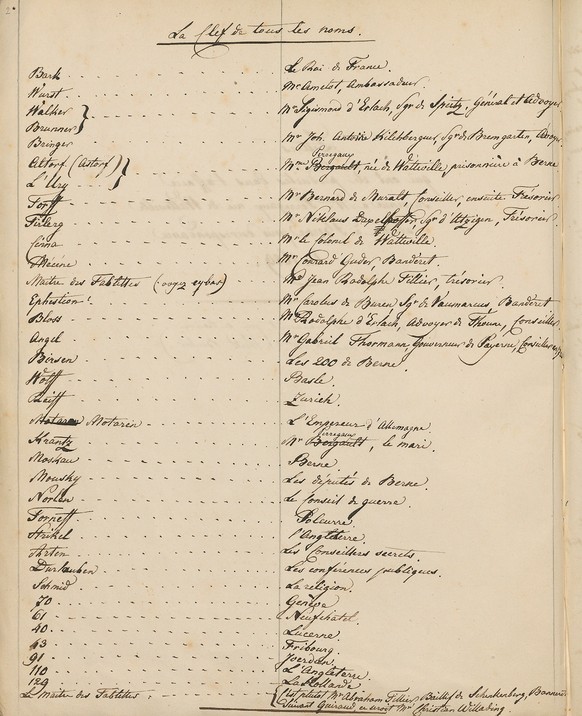 La Clef de tous les noms.
Bark . . . Le Roi de France.
Wurst . . . Mr Amelot, Ambassadeur.
Walker
Brunner } . . . Mr Sigismond d'Erlach, Sgr de Spietz, Général et Advoyer
Bringer . . . Mr Joh. Antoine Kilchberguer, Sgr de Bremgarten,
Altorf (Astorf)
L'Ury } . . . Mme Perregaux Bergault, née de Watteville, prisonnière à Berne
Torff . . . Mr Bernard de Muralt, Conseiller, ensuite Trésorier.
Tirlerg . . . Mr Nikolaus Sgr d'Utzigen, Trésorier.
Sima . . . Mr le Colonel de Watteville.
Mécène . . . Mr Conrard Guder Banderet.
Maître des Tablettes (voyez cy bas) . . . Mr Jean Rodolphe Tillier, trésorier.
Ephestion . . . Mr Carolus de Buren Sgr de Vaumarcus, Banderet
Bloss . . . Mr Rodolphe d'Erlach, Advoyer de Thoune, Conseiller
Angel . . . Mr Gabriel Thormann, Gouverneur de Payerne, Conseiller
Birsen . . . Les 200 de Berne.
Wolff . . . Basle.
Reiff . . . Zurich.
Notarin . . . L'Empereur d'Allemagne.
Krantz . . . Mr Perregaux Bergault, le mari.
Moskau . . . Berne.
Mousky . . . Les députés de Berne.
Norlen . . . Le Conseil de guerre.
Torneff . . . Soleurre.
Strikel . . . l'Angleterre.
Arten . . . Les Conseillers secrets.
Durlauben . . . Les conférences publiques.
Schmid . . . La religion.
70 . . . Genève
61 . . . Neufchatel.
40 . . . Lucerne.
43 . . . Fribourg.
91 . . . Yverdon.
110 . . . L'Angleterre.
129 . . . La Hollande
Le Maître des Tablettes : { c'est plutot Mr Abraham Tillier, Baillif de Schenkenberg, Banneret
Suivant Guiraud ce seroit Mr Christian Willading.